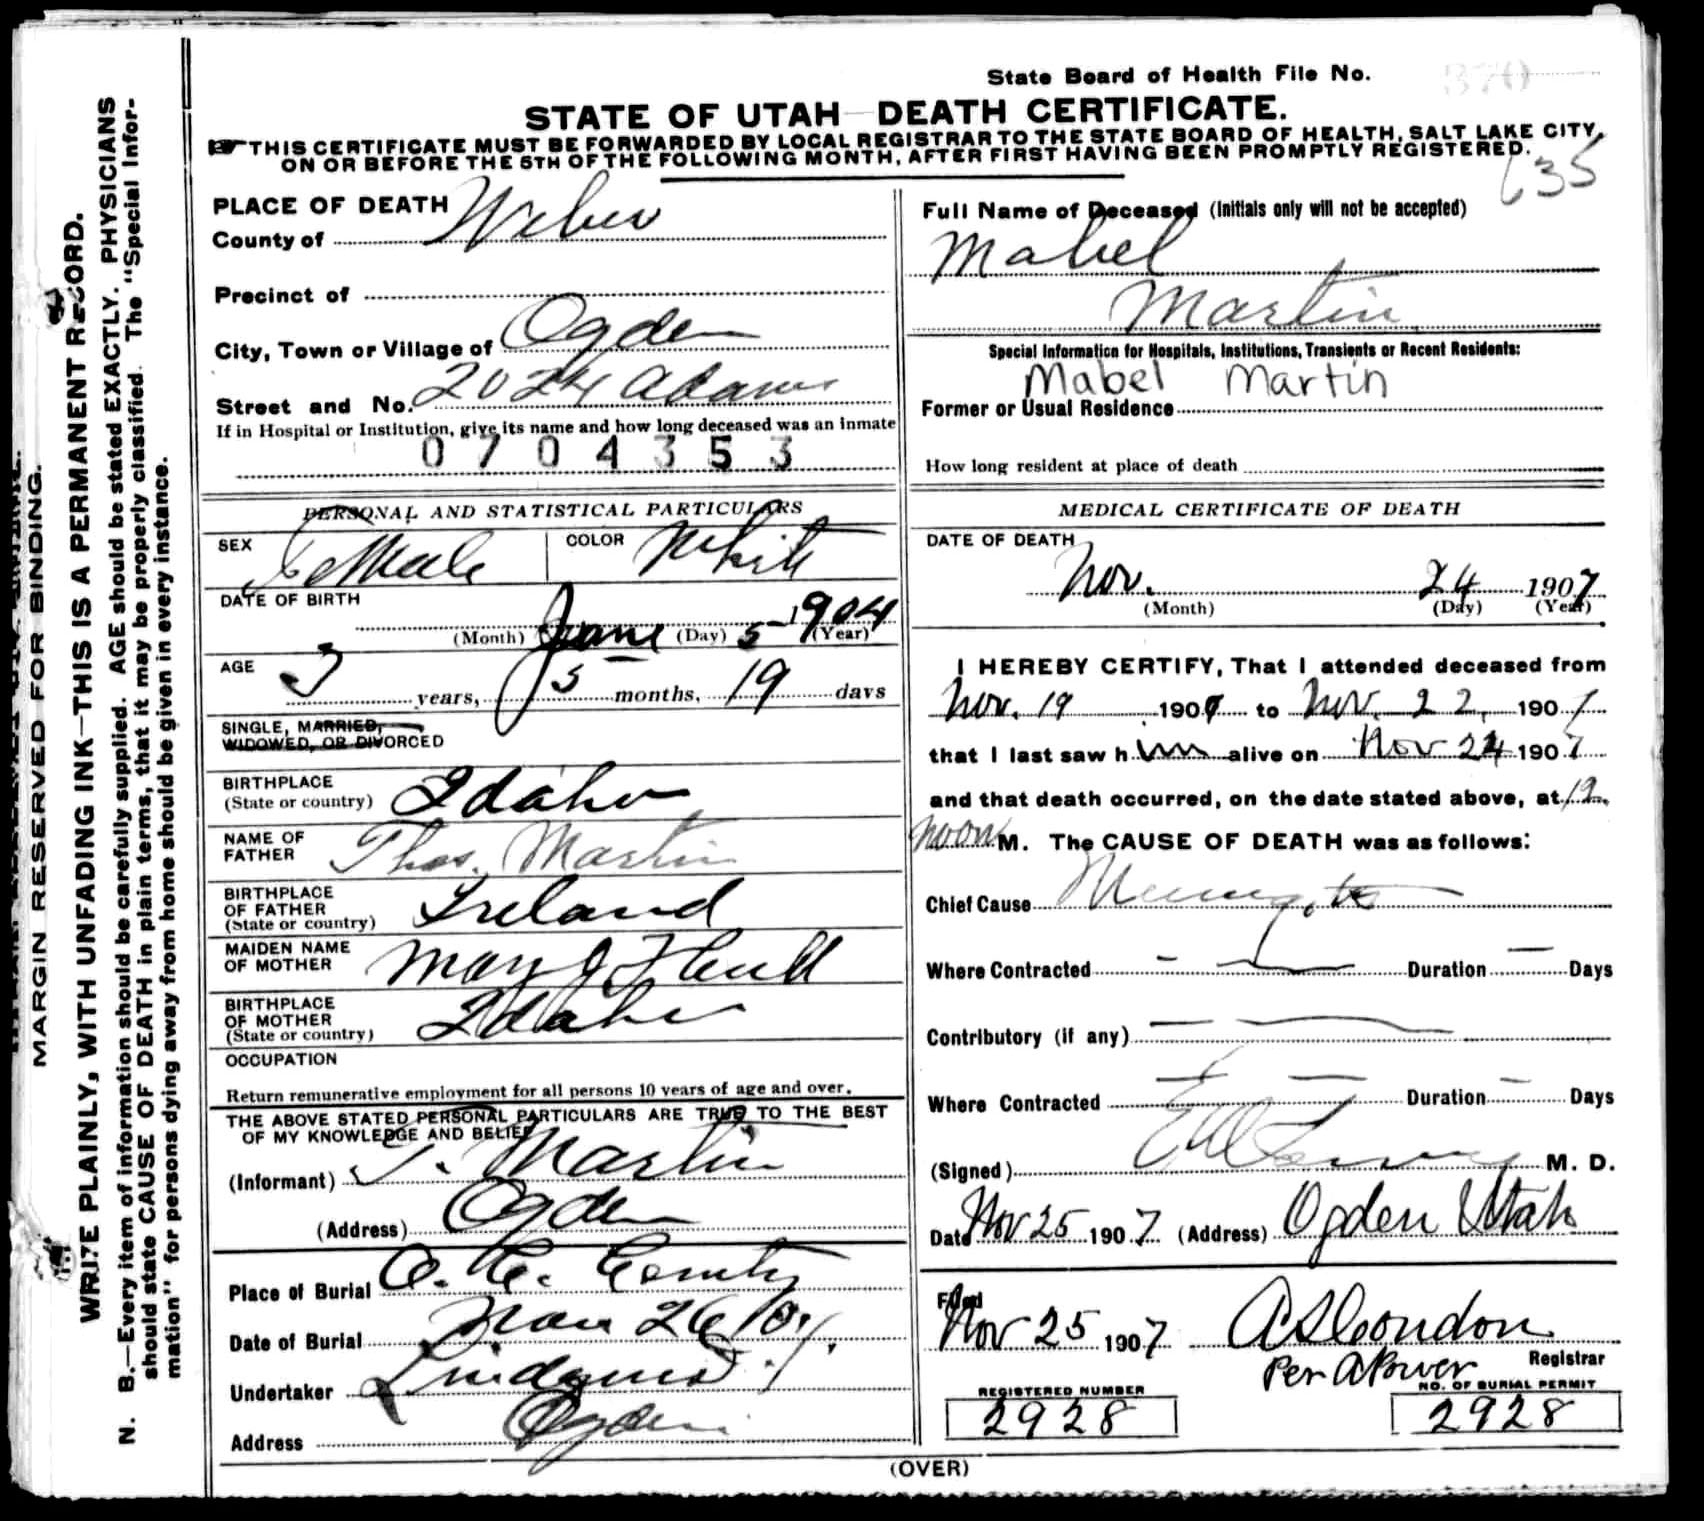 State Board of Health File No. 370
STATE OF UTAH—DEATH CERTIFICATE.
THIS CERTIFICATE MUST BE FORWARDED BY LOCAL REGISTRAR TO THE STATE BOARD OF HEALTH, SALT LAKE CITY,
ON OR BEFORE THE 5TH OF THE FOLLOWING MONTH, AFTER FIRST HAVING BEEN PROMPTLY REGISTERED.
635
MARGIN RESERVED FOR BINDING.
WRITE PLAINLY, WITH UNFADING INK—THIS IS A PERMANENT RECORD.
N. B.—Every item of information should be carefully supplied. AGE should be stated EXACTLY. PHYSICIANS
should state CAUSE OF DEATH in plain terms, that it may be properly classified. The "Special Infor-
mation" for persons dying away from home should be given in every instance.
PLACE OF DEATH
County of Weber
Precinct of
City, Town or Village of Ogden
Street and No. 2024 Adams
If in Hospital or Institution, give its name and how long deceased was an inmate
0704353
PERSONAL AND STATISTICAL PARTICULARS
SEX Female COLOR White
DATE OF BIRTH
(Month) June (Day) 5 1904 (Year)
AGE 3 years, 5 months, 19 days
SINGLE, MARRIED,
WIDOWED, OR DIVORCED
BIRTHPLACE
(State or country) Idaho
NAME OF
FATHER Thos. Martin
BIRTHPLACE
OF FATHER
(State or country) Ireland
MAIDEN NAME
OF MOTHER Mary J
BIRTHPLACE
OF MOTHER
(State or country) Idaho
OCCUPATION
Return remunerative employment for all persons 10 years of age and over.
THE ABOVE STATED PERSONAL PARTICULARS ARE TRUE TO THE BEST
OF MY KNOWLEDGE AND BELIEF
(Informant) T. Martin
(Address) Ogden
Place of Burial O. C.
Date of Burial Nov 26
Undertaker
Address Ogden
Full Name of Deceased (Initials only will not be accepted)
Mabel
Martin
Special Information for Hospitals, Institutions, Transients or Recent Residents:
Mabel Martin
Former or Usual Residence
How long resident at place of death
MEDICAL CERTIFICATE OF DEATH
DATE OF DEATH
Nov. 24 1907
(Month) (Day) (Year)
I HEREBY CERTIFY, That I attended deceased from
Nov. 19 1907 to Nov. 22, 1907
that I last saw h im alive on Nov 24 1907
and that death occurred, on the date stated above, at 12
noon M. The CAUSE OF DEATH was as follows:
Chief Cause
Where Contracted Duration Days
Contributory (if any)
Where Contracted Duration Days
(Signed) M. D.
Date Nov 25 1907 (Address) Ogden Utah
Filed
Nov 25 1907 A S Condon
Per A Power Registrar
REGISTERED NUMBER
2928
NO. OF BURIAL PERMIT
2928
(OVER)